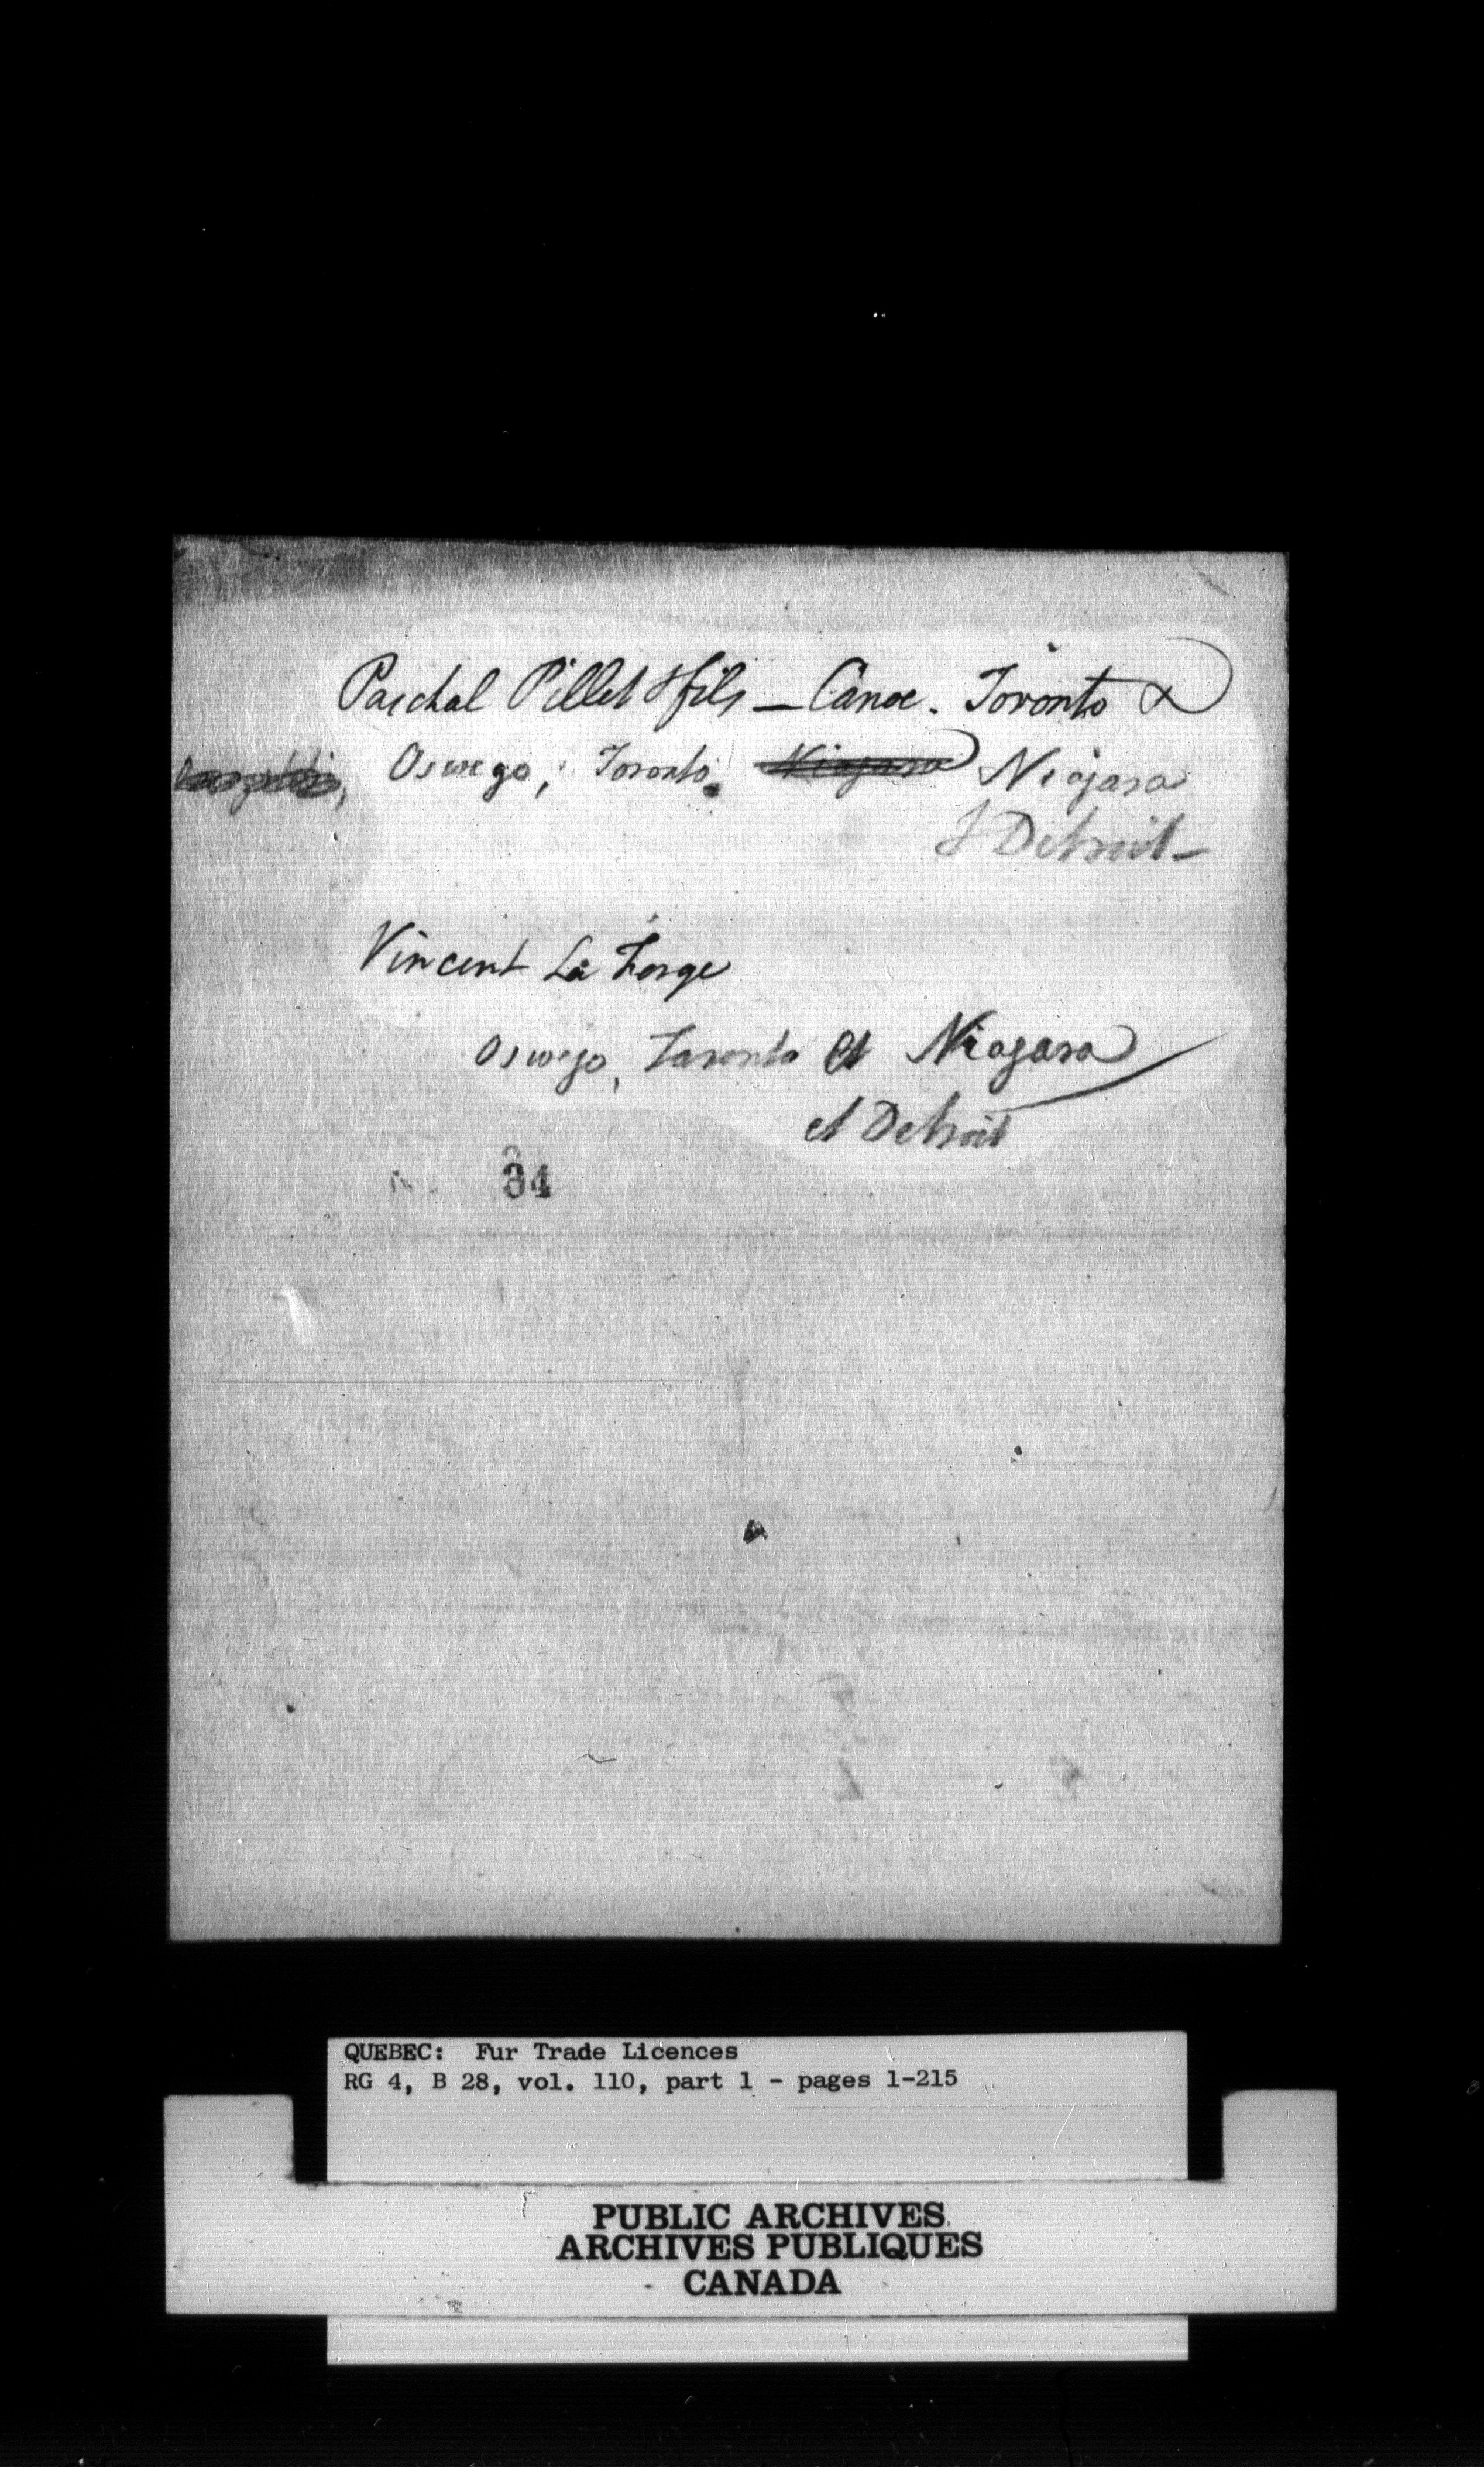 Paschal Pillet & fils — Canoe. Toronto &
Oswego, Toronto. Niagara Niagara
& Detroit —
Vincent La Forge
Oswego, Taronto et Niagara
et Detroit
34
QUEBEC: Fur Trade Licences
RG 4, B 28, vol. 110, part 1 - pages 1-215
PUBLIC ARCHIVES
ARCHIVES PUBLIQUES
CANADA